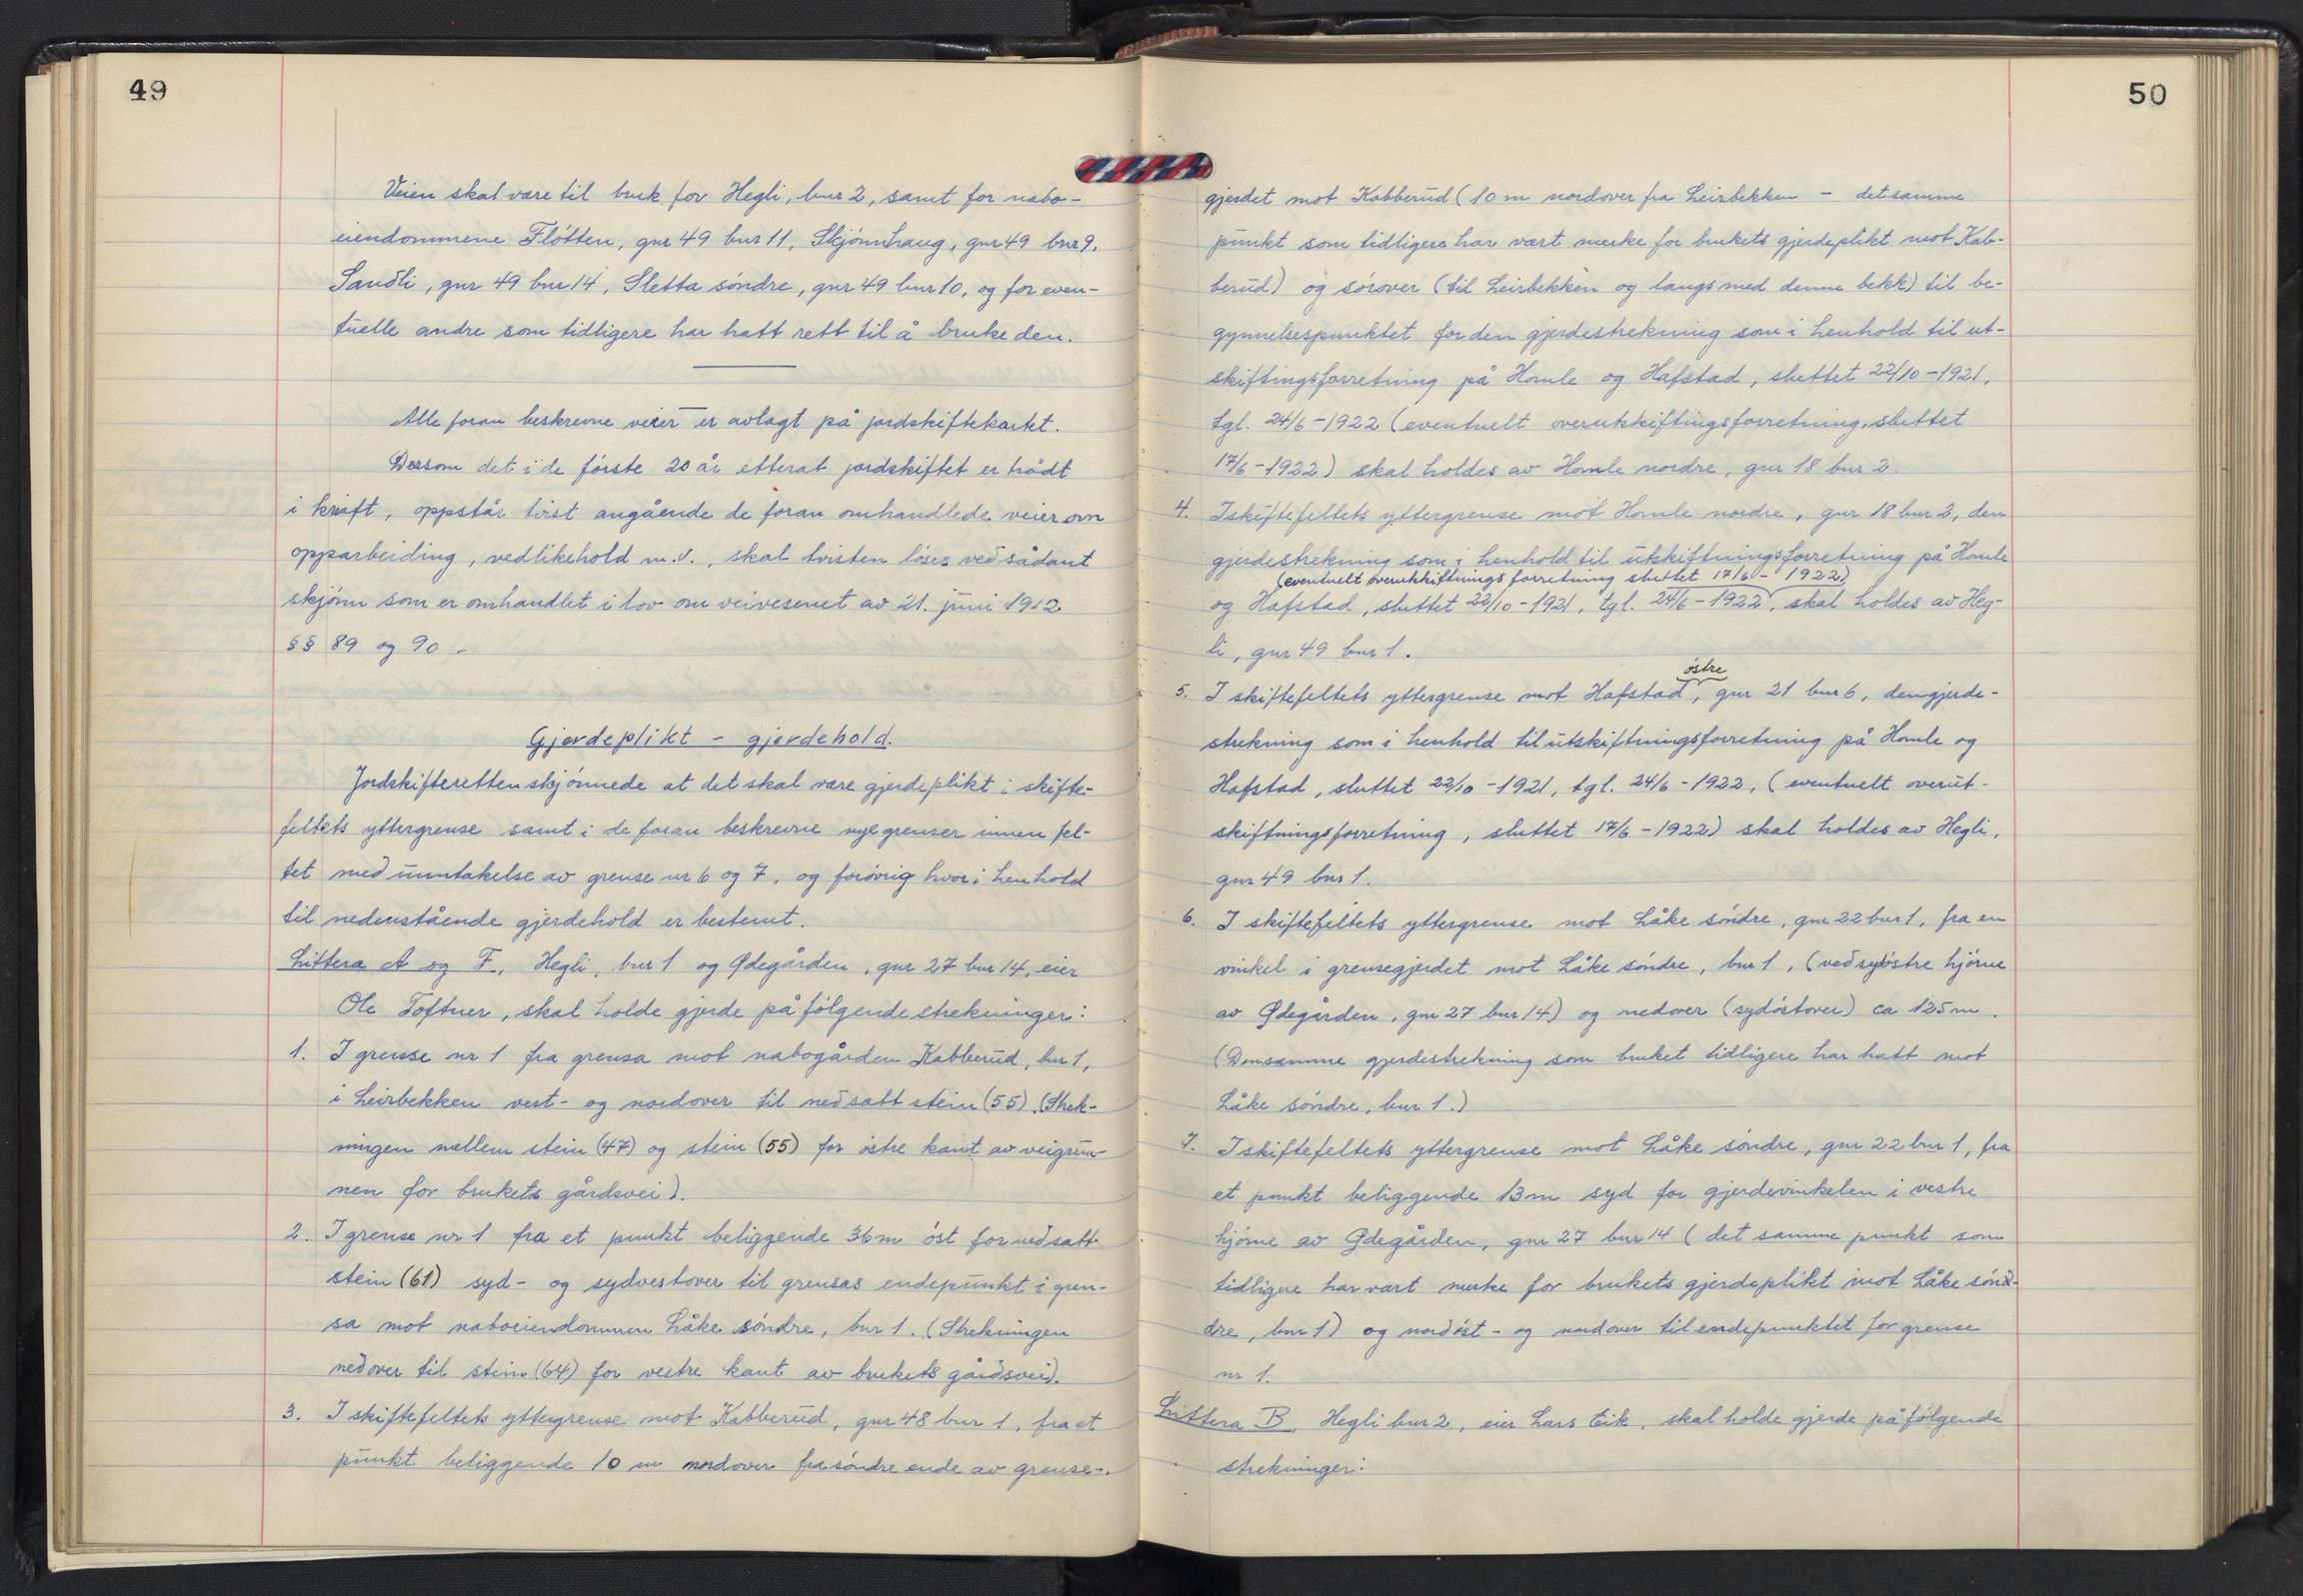 49
Veien skal være til bruk for Hegli, bnr 2, samt for nabo-
eiendommene Fløtten, gnr 49 bnr 11, Skjønnhaug, gnr 49 bnr 9,
Sandli, gnr 49 bnr 14, Sletta søndre, gnr 49 bnr 10, og for even-
tuelle andre som tidligere har hatt rett til å bruke den.
Alle foran beskrevne veier er avlagt på jordskiftekartet.
Dersom det i de første 20 år etterat jordskiftet er trådt
i kraft, oppstår tvist angående de foran omhandlede veier om
opparbeiding, vedlikehold m.v., skal tvisten løses ved sådant
skjønn som er omhandlet i lov om veivesenet av 21. juni 1912
§§ 89 og 90 -
Gjerdeplikt - gjerdehold.
Jordskifteretten skjønnede at det skal være gjerdeplikt i skifte-
feltets yttergrense samt i de foran beskrevne nye grenser innen fel-
tet med unntakelse av grense nr 6 og 7, og forøvrig hvor i henhold
til nedenstående gjerdehold er bestemt.
Littera A og F, Hegli, bnr 1 og Ødegården, gnr 27 bnr 14, eier
Ole Toftner, skal holde gjerde på følgende strekninger:
1. I grense nr 1 fra grensa mot nabogården Kabberud, bnr 1,
i Leirbekken vest- og nordover til nedsatt stein (55). (Strek-
ningen mellem stein (47) og stein (55) for østre kant av veigrun-
nen for brukets gårdsvei).
2. I grense nr 1 fra et punkt beliggende 36 m øst for nedsatt
stein (61) syd- og sydvestover til grensas endepunkt i gren-
sa mot naboeiendommen Låke søndre, bnr 1. (Strekningen
nedover til stein (64) for vestre kant av brukets gårdsvei).
3. I skiftefeltets yttergrense mot Kabberud, gnr 48 bnr 1, fra et
punkt beliggende 10 m nordover fra søndre ende av grense-
50
gjerdet mot Kabberud (10 m nordover fra Leirbekken - det samme
punkt som tidligere har vært merke for brukets gjerdeplikt mot Kab-
berud) og sørover (til Leirbekken og langs med denne bekk) til be-
gynnelsespunktet for den gjerdestrekning som i henhold til ut-
skiftingsforretning på Homle og Hafstad, sluttet 22/10-1921,
tgl. 24/6-1922 (eventuelt overutskiftingsforretning, sluttet
17/6-1922) skal holdes av Homle nordre, gnr 18 bnr 2.
4. I skiftefeltets yttergrense mot Homle nordre, gnr 18 bnr 2, den
gjerdestrekning som i henhold til utskiftningsforretning på Homle
(eventuelt overutskiftnings forretning sluttet 17/6 - 1922)
og Hafstad, sluttet 22/10-1921, tgl. 24/6-1922, skal holdes av Heg-
li, gnr 49 bnr 1.
østre
5. I skiftefeltets yttergrense mot Hafstad, gnr 21 bnr 6, den gjerde-
strekning som i henhold til utskiftningsforretning på Homle og
Hafstad, sluttet 22/10 -1921, tgl. 24/6-1922, (eventuelt overut-
skiftningsforretning, sluttet 17/6-1922) skal holdes av Hegli,
gnr 49 bnr 1.
6. I skiftefeltets yttergrense mot Låke søndre, gnr 22 bnr 1, fra en
vinkel i grensegjerdet mot Låke søndre, bnr 1, (ved sydøstre hjørne
av Ødegården, gnr 27 bnr 14) og nedover (sydøstover) ca 125 m.
(Den samme gjerdestrekning som bruket tidligere har hatt mot
Låke søndre, bnr 1.)
7. I skiftefeltets yttergrense mot Låke søndre, gnr 22 bnr 1, fra
et punkt beliggende 13 m syd for gjerdevinkelen i vestre
hjørne av Ødegården, gnr 27 bnr 14 (det samme punkt som
tidligere har vært merke for brukets gjerdeplikt mot Låke sønd-
dre, bnr 1) og nordøst- og nordover til endepunktet for grense
nr 1.
Littera B, Hegli bnr 2, eier Lars Eik, skal holde gjerde på følgende
strekninger: